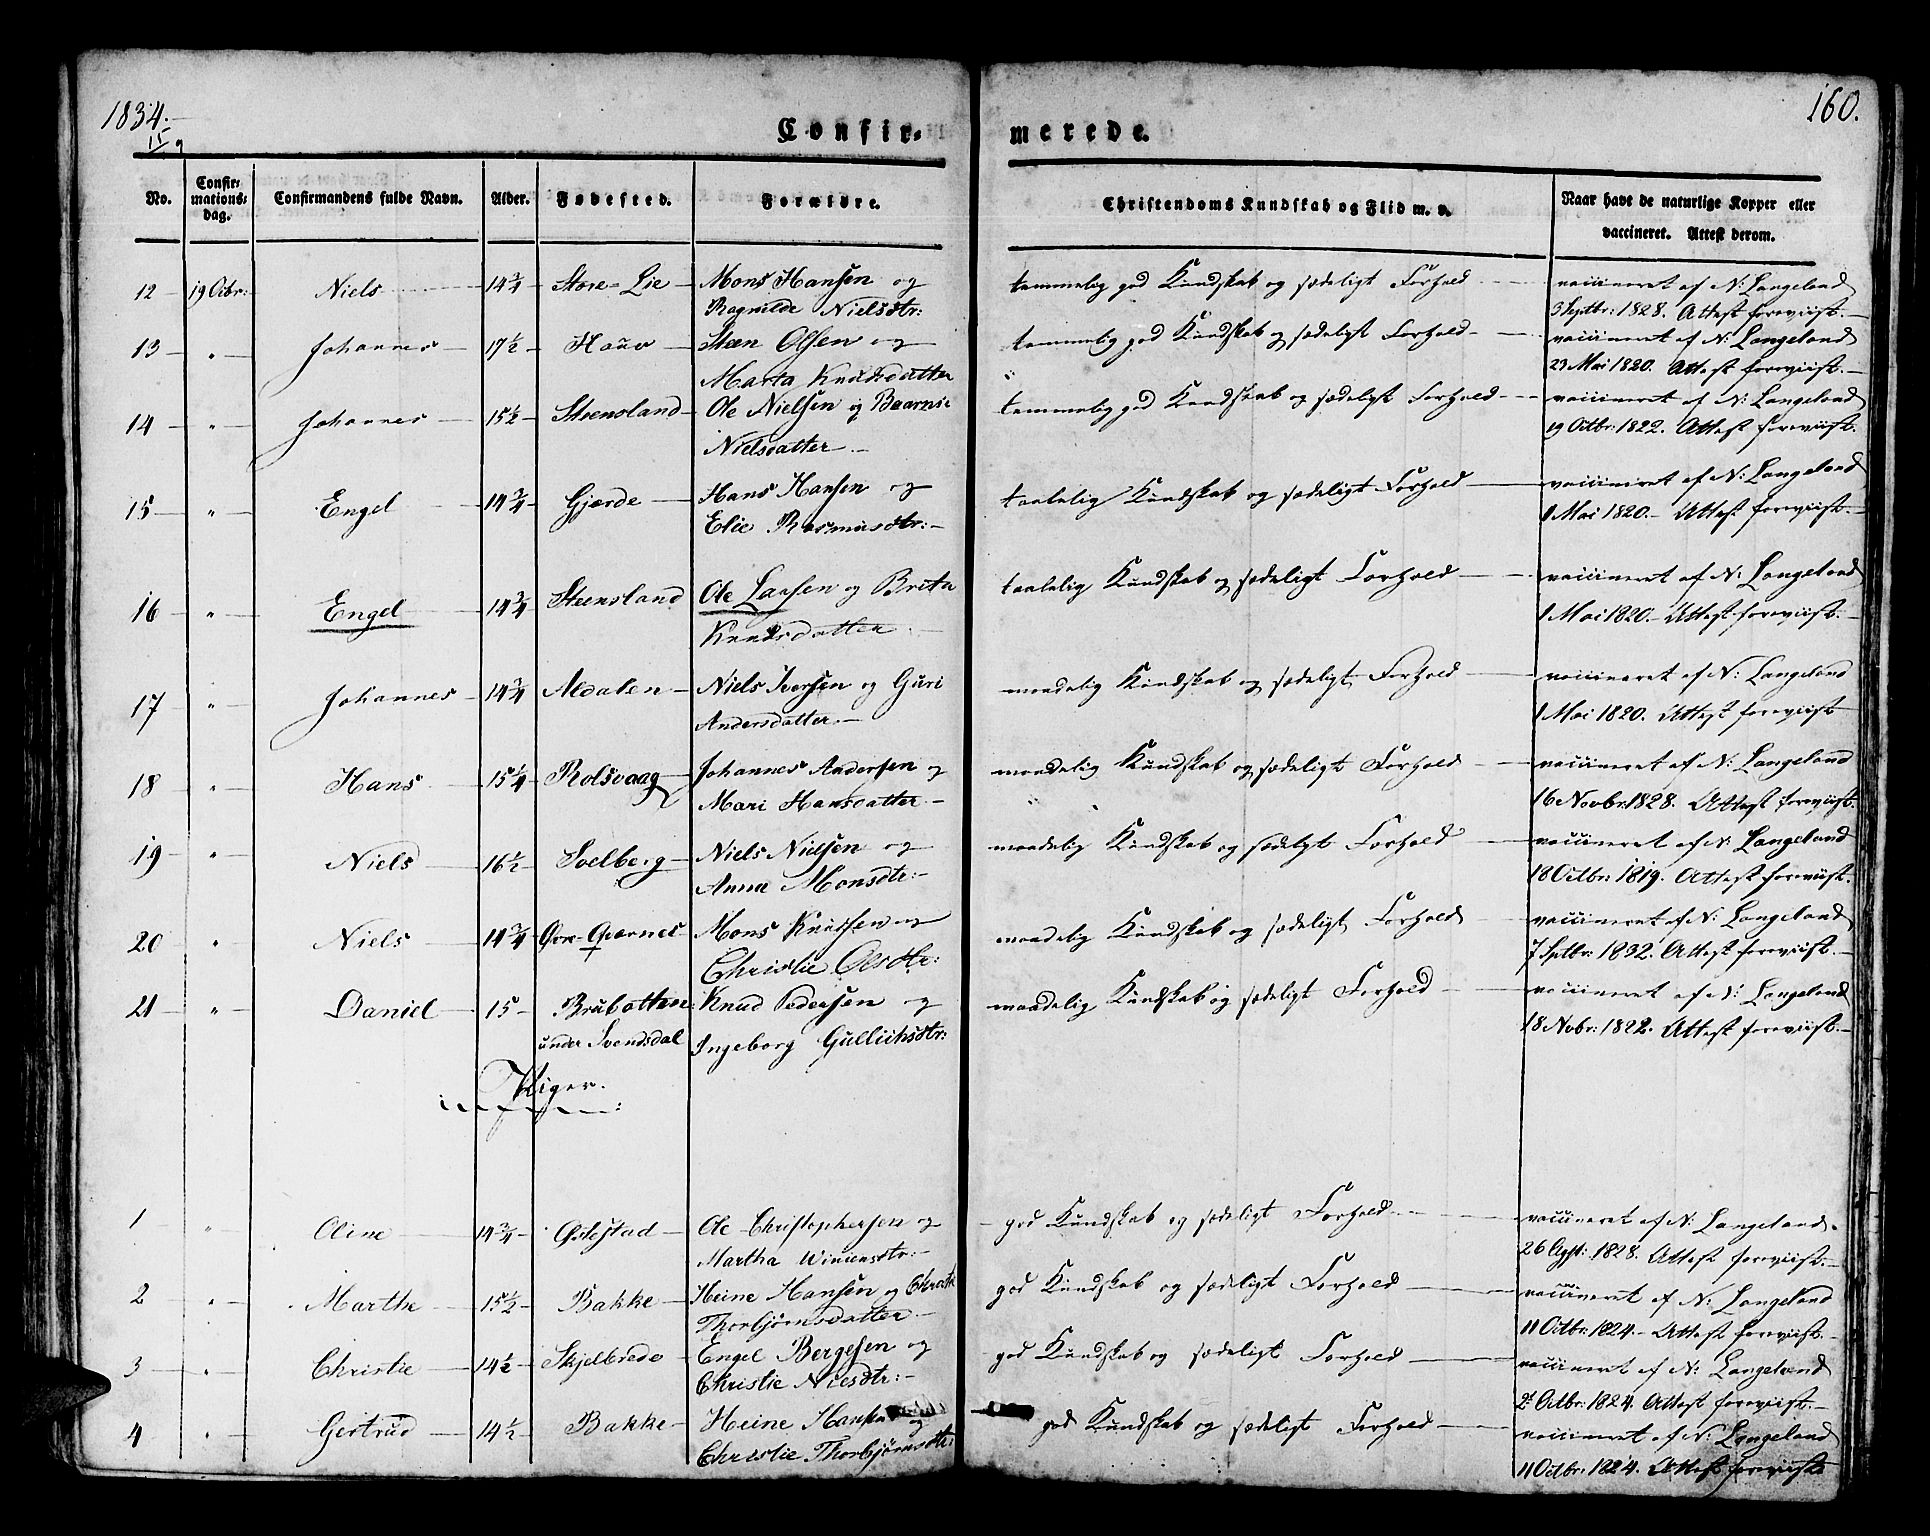 1834.
160.
Confir- merede.
No. Confir- mations- dag. Confirmandens fulde Navn. Alder. Fødested. Forældre. Christendoms Kundskab og Flid m. v. Naar have de naturlige Kopper eller vaccineret. Attest derom.
12 19 Octbr: Niels 14 3/4 Store-Lie Mons Hansen og temmelig god Kundskab og sædeligt Forhold vaccineret af N: Langeland
Ragnilde Nielsdtr: 3 Septbr: 1828. Attest foreviist.
13 " Johannes 17 1/2 Steen Olsen og temmelig god Kundskab og sædeligt Forhold vaccineret af N: Langeland
Marta Knudsdatter 23 Mai 1820. Attest foreviist.
14 " Johannes 15 1/2 Steensland Ole Nielsen og temmelig god Kundskab og sædeligt Forhold vaccineret af N: Langeland
Nielsdatter 19 Octbr: 1822. Attest foreviist.
15 " Engel 14 3/4 Gjærde Hans Hansen og taalelig Kundskab og sædeligt Forhold vaccineret af N: Langeland
Elie Rasmusdtr: 1 Mai 1820. Attest foreviist.
16 " Engel 14 3/4 Steensland Ole Larsen og Brita taalelig Kundskab og sædeligt Forhold vaccineret af N: Langeland
Knudsdatter 1 Mai 1820. Attest foreviist.
17 " Johannes 14 3/4 Aldalen Niels Iversen og Guri maadelig Kundskab og sædeligt Forhold vaccineret af N: Langeland
Andersdatter 1 Mai 1820. Attest foreviist
18 " Hans 15 1/4 Rolsvaag Johannes Andersen og maadelig Kundskab og sædeligt Forhold vaccineret af N: Langeland
Mari Hansdatter 16 Novbr: 1828. Attest foreviist.
19 " Niels 16 1/2 Solberg Niels Nielsen og maadelig Kundskab og sædeligt Forhold vaccineret af N: Langeland
Anna Monsdtr: 18 Octbr: 1819. Attest foreviist.
20 " Niels 14 3/4 Mons Knudsen og maadelig Kundskab og sædeligt Forhold vaccineret af N: Langeland
Christie Olsdtr: 7 Septbr: 1832. Attest foreviist.
21 " Daniel 15 Brubotten Knud Pedersen og maadelig Kundskab og sædeligt Forhold vaccineret af N: Langeland
under Svendsdal Ingeborg Gullichsdtr: 18 Novbr: 1822. Attest foreviist.
Piger.
1 " Oline 14 3/4 Østestad Ole Christophersen og god Kundskab og sædeligt Forhold vaccineret af N: Langeland
Martha 26 Agst: 1828. Attest foreviist.
2 " Marthe 15 1/2 Bakke Heine Hansen og Christie god Kundskab og sædeligt Forhold vaccineret af N: Langeland
Thorbjørnsdatter 11 Octbr: 1824. Attest foreviist.
3 " Christie 14 1/2 Skjelbrede Engel Bergesen og god Kundskab og sædeligt Forhold vaccineret af N: Langeland
Christie Nilsdtr: 2 Octbr: 1824. Attest foreviist.
4 " Gertrud 14 1/2 Bakke Heine Hansen og god Kundskab og sædeligt Forhold vaccineret af N: Langeland
Christie Thorbjørnsdtr: 11 Octbr: 1824. Attest foreviist